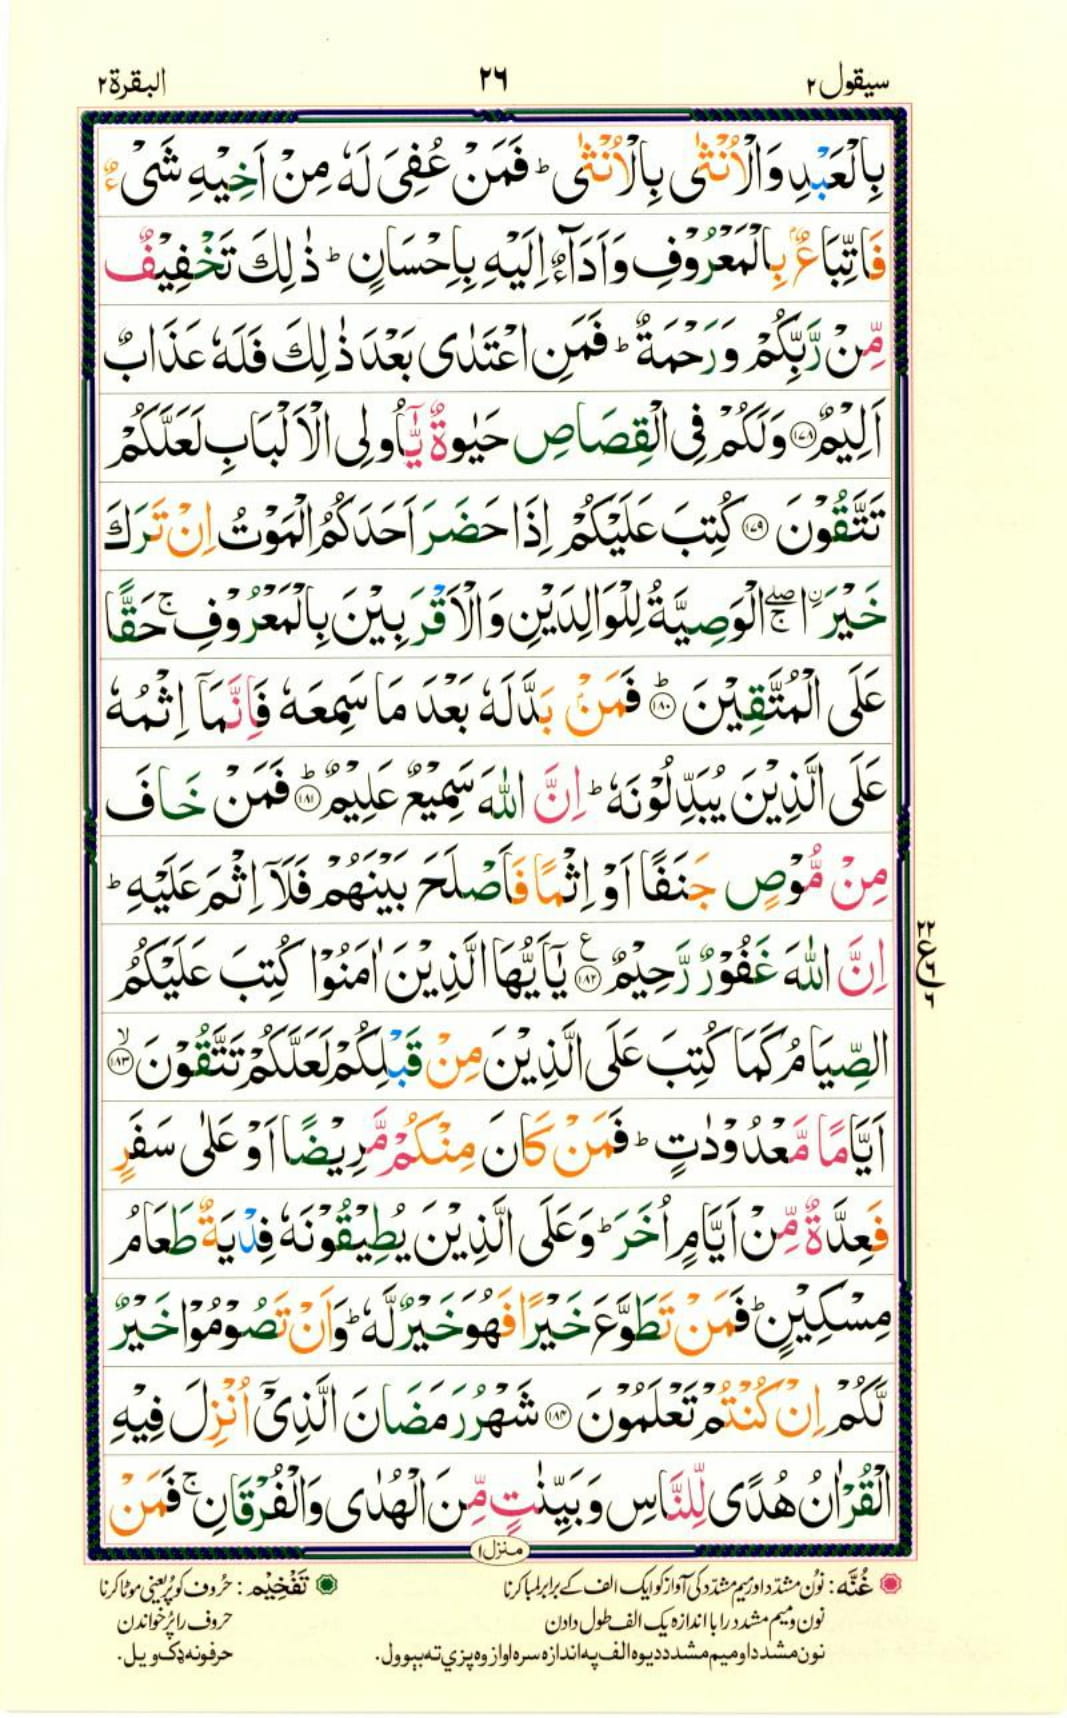 سیقول ٢
٢٦
البقرة ٢
بِالْعَبْدِ وَالْاُنْثٰى بِالْاُنْثٰى ؕ فَمَنْ عُفِیَ لَهٗ مِنْ اَخِیْهِ شَیْءٌ
فَاتِّبَاعٌۢ بِالْمَعْرُوْفِ وَاَدَآءٌ اِلَیْهِ بِاِحْسَانٍ ؕ ذٰلِكَ تَخْفِیْفٌ
مِّنْ رَّبِّكُمْ وَرَحْمَةٌ ؕ فَمَنِ اعْتَدٰى بَعْدَ ذٰلِكَ فَلَهٗ عَذَابٌ
اَلِیْمٌ ﴿١٧٨﴾ وَلَكُمْ فِی الْقِصَاصِ حَیٰوةٌ یّٰۤاُولِی الْاَلْبَابِ لَعَلَّكُمْ
تَتَّقُوْنَ ﴿١٧٩﴾ كُتِبَ عَلَیْكُمْ اِذَا حَضَرَ اَحَدَكُمُ الْمَوْتُ اِنْ تَرَكَ
خَیْرَ ۨاۖۚ الْوَصِیَّةُ لِلْوَالِدَیْنِ وَالْاَقْرَبِیْنَ بِالْمَعْرُوْفِ ۚ حَقًّا
عَلَى الْمُتَّقِیْنَ ﴿١٨٠﴾ؕ فَمَنْۢ بَدَّلَهٗ بَعْدَ مَا سَمِعَهٗ فَاِنَّمَاۤ اِثْمُهٗ
عَلَى الَّذِیْنَ یُبَدِّلُوْنَهٗ ؕ اِنَّ اللّٰهَ سَمِیْعٌ عَلِیْمٌ ﴿١٨١﴾ؕ فَمَنْ خَافَ
مِنْ مُّوْصٍ جَنَفًا اَوْ اِثْمًا فَاَصْلَحَ بَیْنَهُمْ فَلَاۤ اِثْمَ عَلَیْهِ ؕ
اِنَّ اللّٰهَ غَفُوْرٌ رَّحِیْمٌ ﴿١٨٢﴾ع یٰۤاَیُّهَا الَّذِیْنَ اٰمَنُوْا كُتِبَ عَلَیْكُمُ
٢٢
ع
٦
٢
الصِّیَامُ كَمَا كُتِبَ عَلَى الَّذِیْنَ مِنْ قَبْلِكُمْ لَعَلَّكُمْ تَتَّقُوْنَ ﴿١٨٣﴾ۙ
اَیَّامًا مَّعْدُوْدٰتٍ ؕ فَمَنْ كَانَ مِنْكُمْ مَّرِیْضًا اَوْ عَلٰى سَفَرٍ
فَعِدَّةٌ مِّنْ اَیَّامٍ اُخَرَ ؕ وَعَلَى الَّذِیْنَ یُطِیْقُوْنَهٗ فِدْیَةٌ طَعَامُ
مِسْكِیْنٍ ؕ فَمَنْ تَطَوَّعَ خَیْرًا فَهُوَ خَیْرٌ لَّهٗ ؕ وَاَنْ تَصُوْمُوْا خَیْرٌ
لَّكُمْ اِنْ كُنْتُمْ تَعْلَمُوْنَ ﴿١٨٤﴾ شَهْرُ رَمَضَانَ الَّذِیْۤ اُنْزِلَ فِیْهِ
الْقُرْاٰنُ هُدًى لِّلنَّاسِ وَبَیِّنٰتٍ مِّنَ الْهُدٰى وَالْفُرْقَانِ ۚ فَمَنْ
منزل ١
غُنَّه : نون مشدد اور میم مشدد کی آواز کو ایک الف کے برابر لمبا کرنا
نون و میم مشدد را با اندازه یک الف طول دادن
نون مشدد او میم مشدد دیوه الف په اندازه سره اواز وه پزي ته بېوول.
تَفْخِیْم : حُروف کو پُر یعنی موٹا کرنا
حروف را پُر خواندن
حرفونه ډک ویل.